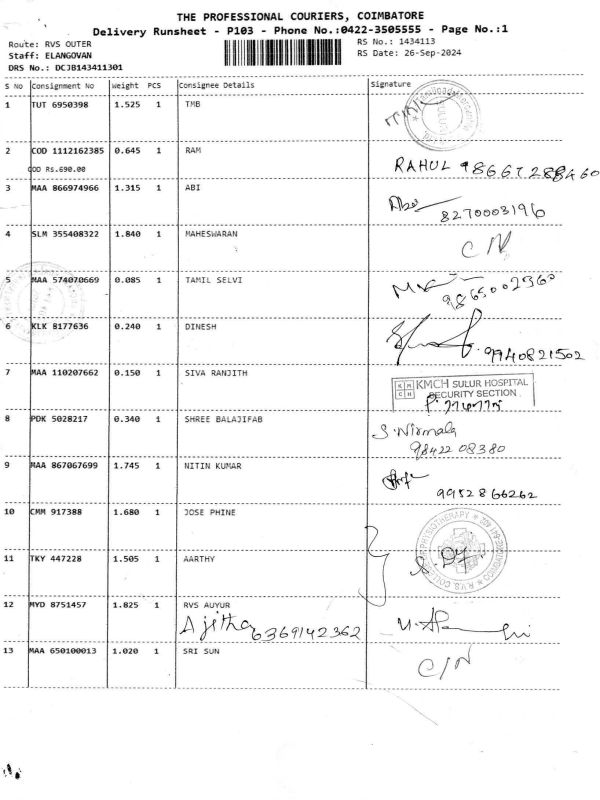 THE PROFESSIONAL COURIERS, COIMBATORE
Delivery Runsheet - P103 - Phone No.:0422-3505555 - Page No.:1
Route: RVS OUTER
RS No.: 1434113
Staff: ELANGOVAN
RS Date: 26-Sep-2024
DRS No.: DCJB143411301
S No Consignment No Weight PCS Consignee Details Signature
1 TUT 6950398 1.525 1 TMB
2 COD 1112162385 0.645 1 RAM
COD Rs.690.00
RAHUL
3 MAA 866974966 1.315 1 ABI
8270003196
4 SLM 355408322 1.840 1 MAHESWARAN
C/N
5 MAA 574070669 0.085 1 TAMIL SELVI
9865002360
6 KLK 8177636 0.240 1 DINESH
9940821502
7 MAA 110207662 0.150 1 SIVA RANJITH
KMCH KMCH SULUR HOSPITAL
SECURITY SECTION
8 PDK 5028217 0.340 1 SHREE BALAJIFAB
S. Nirmala
98422 08380
9 MAA 867067699 1.745 1 NITIN KUMAR
9952866262
10 CMM 917388 1.680 1 JOSE PHINE
11 TKY 447228 1.505 1 AARTHY
12 MYD 8751457 1.825 1 RVS AUYUR
Ajitha 6369142362
13 MAA 650100013 1.020 1 SRI SUN
C/N